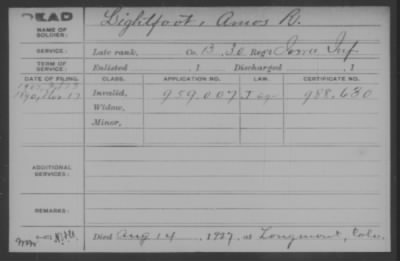 DEAD
NAME OF SOLDIER: Lightfoot, Amos R.
SERVICE: Late rank, Co. B, 30 Reg't Iowa Inf.
TERM OF SERVICE: Enlisted , 1 Discharged , 1
DATE OF FILING. CLASS. APPLICATION NO. LAW. CERTIFICATE NO.
Invalid, 959.007 988.630
Widow,
Minor,
ADDITIONAL SERVICES:
REMARKS:
Died Aug 14, 1927, at Longmont, Colo.